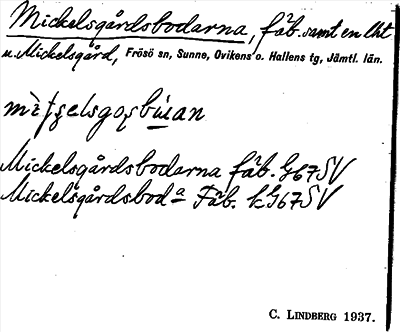 Mickelsgårdsbodarna, fäb. samt en lht
u. Mickelsgård, Frösö sn, Sunne, Ovikens o. Hallens tg, Jämtl. län.
Mickelsgårdsbodarna fäb. G67SV
Mickelsgårdsbod a Fäb. k G67SV
C. LINDBERG 1937.